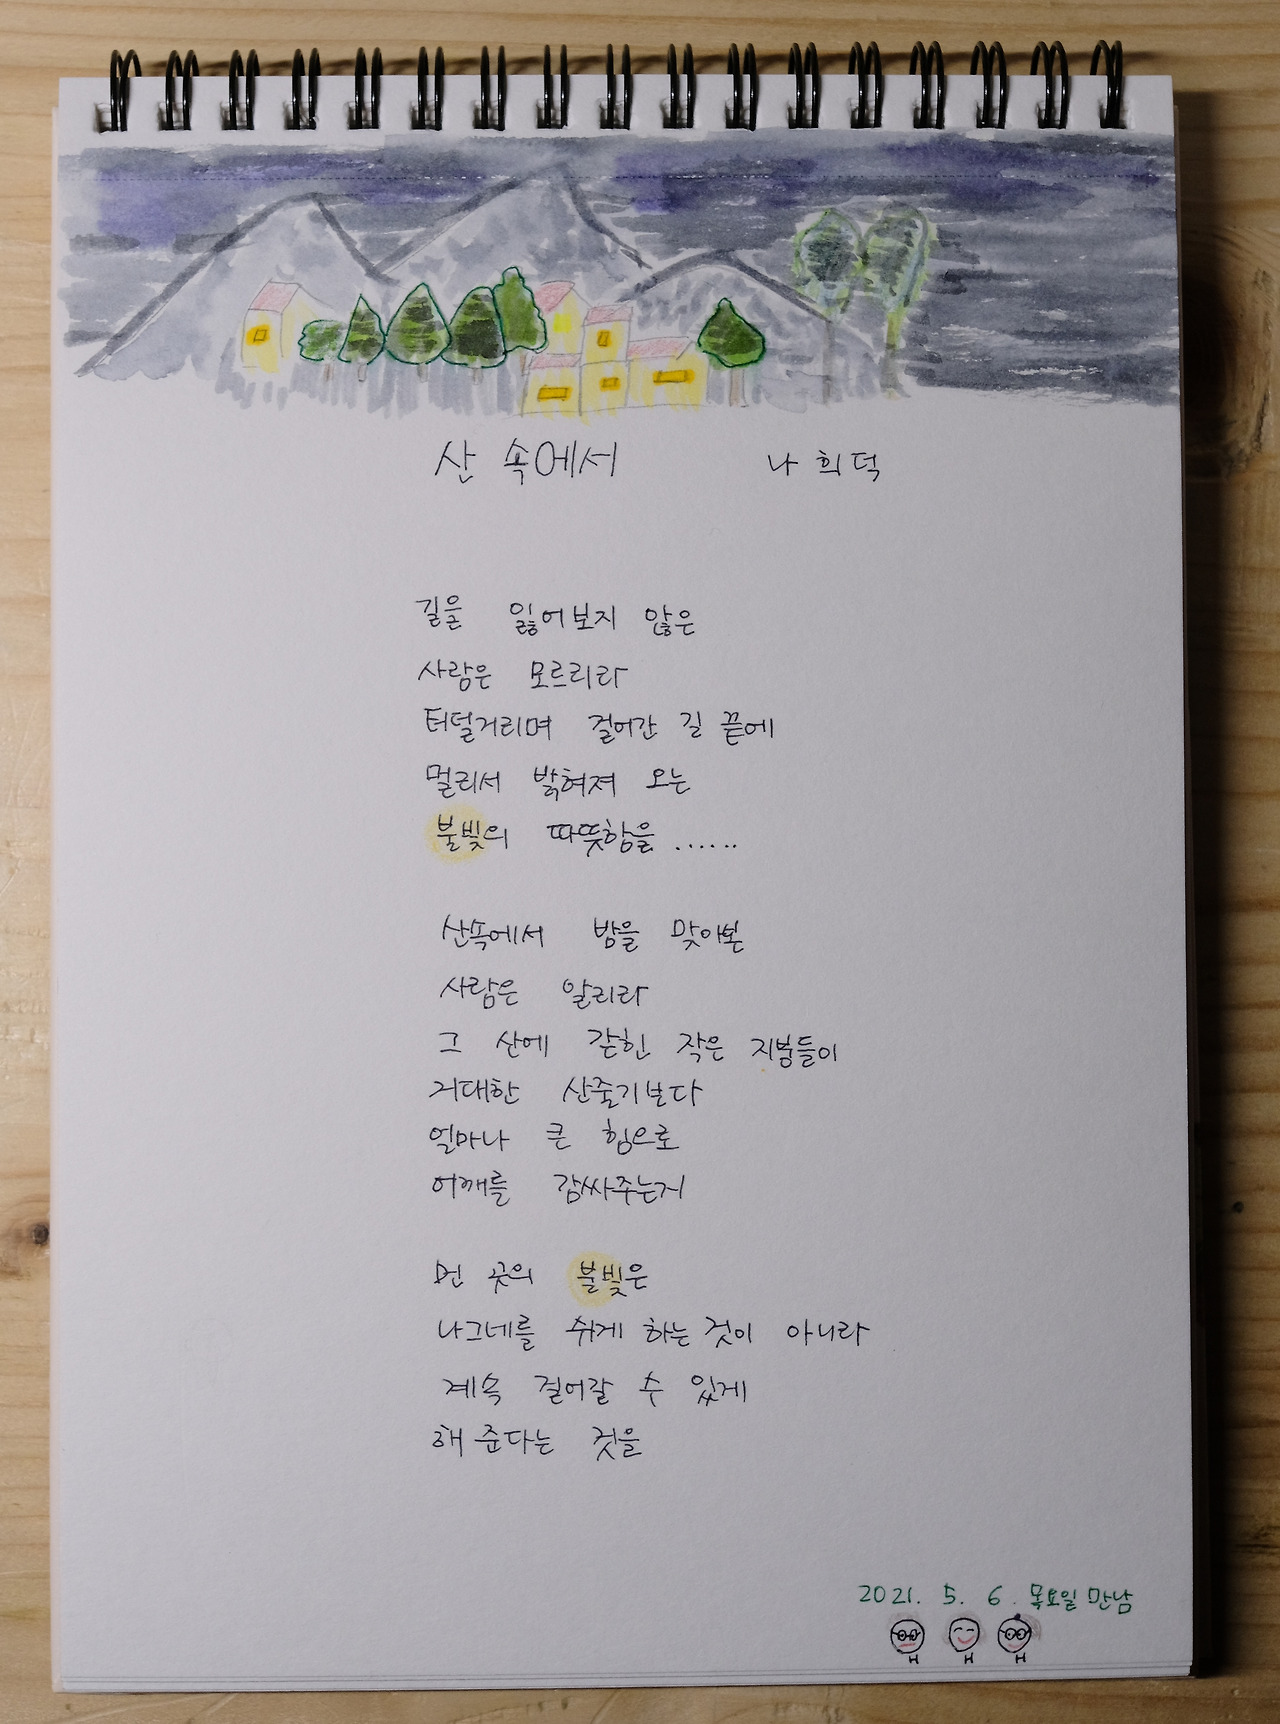 산 속에서 나 희 덕
길을 잃어보지 않은
사람은 모르리라
터덜거리며 걸어간 길 끝에
멀리서 밝혀져 오는
불빛의 따뜻함을 ......
산속에서 밤을 맞아본
사람은 알리라
그 산에 갇힌 작은 지붕들이
거대한 산줄기보다
얼마나 큰 힘으로
어깨를 감싸주는지
먼 곳의 불빛은
나그네를 쉬게 하는 것이 아니라
계속 걸어갈 수 있게
해 준다는 것을
2021. 5. 6. 목요일 만남
H H H